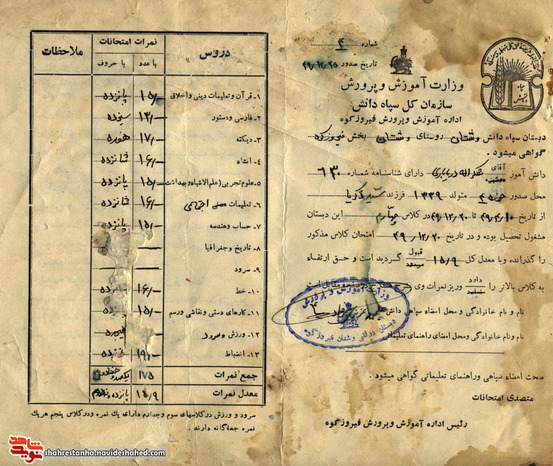 شماره ۴
تاریخ صدور ۴۹/۱۲/۲۵
وزارت آموزش و پرورش
سازمان کل سپاه دانش
اداره آموزش و پرورش فیروزکوه
دبستان سپاه دانش وشتان روستای وشتان بخش فیروزکوه
گواهی میشود .
دانش آموز آقای دارای شناسنامه شماره ۶۳۰
محل صدور متولد ۱۳۳۹ فرزند
از تاریخ تا تاریخ در کلاس چهارم این دبستان
مشغول تحصیل بوده و در تاریخ ۴۹/۱۲/۲۰ امتحان کلاس مذکور
را گذرانده و با معدل کل ۱۵/۹ قبول گردیده است و حق ارتقاء
به کلاس بالاتر را دارد وریز نمرات وی
نام و نام خانوادگی و محل امضاء سپاهی دانش
نام و نام خانوادگی و محل امضای راهنمای تعلیماتی
وزارت آموزش و پرورش
صحت امضاء سپاهی وراهنمای تعلیماتی گواهی میشود .
متصدی امتحانات
رئیس اداره آموزش و پرورش فیروزکوه
دروس نمرات امتحانات ملاحظات
با عدد با حروف
۱ـ قرآن و تعلیمات دینی و اخلاق ۱۵/- پانزده
۲ـ فارسی و دستور ۱۳/- سیزده
۳ـ دیکته ۱۷/- هفده
۴ـ انشاء ۱۶/- شانزده
۵ـ علوم تجربی (علم الاشیاء و بهداشت) ۱۵/- پانزده
۶ـ تعلیمات اجتماعی ۱۶/- شانزده
۷ـ حساب و هندسه ۱۵/- پانزده
۸ـ تاریخ و جغرافیا
۹ـ سرود
۱۰ـ خط ۱۶/-
۱۱ـ کارهای دستی و نقاشی ورسم ۱۵/- پانزده
۱۲ـ ورزش و سرود
۱۳ـ انضباط ۱۹/-
جمع نمرات ۱۷۵
معدل نمرات ۱۵/۹
سرود و ورزش در کلاسهای سوم و چهارم دارای یک نمره و در کلاس پنجم هر یک
نمره جداگانه دارند .
نوید شاهد
shahrestanha.navideshahed.com